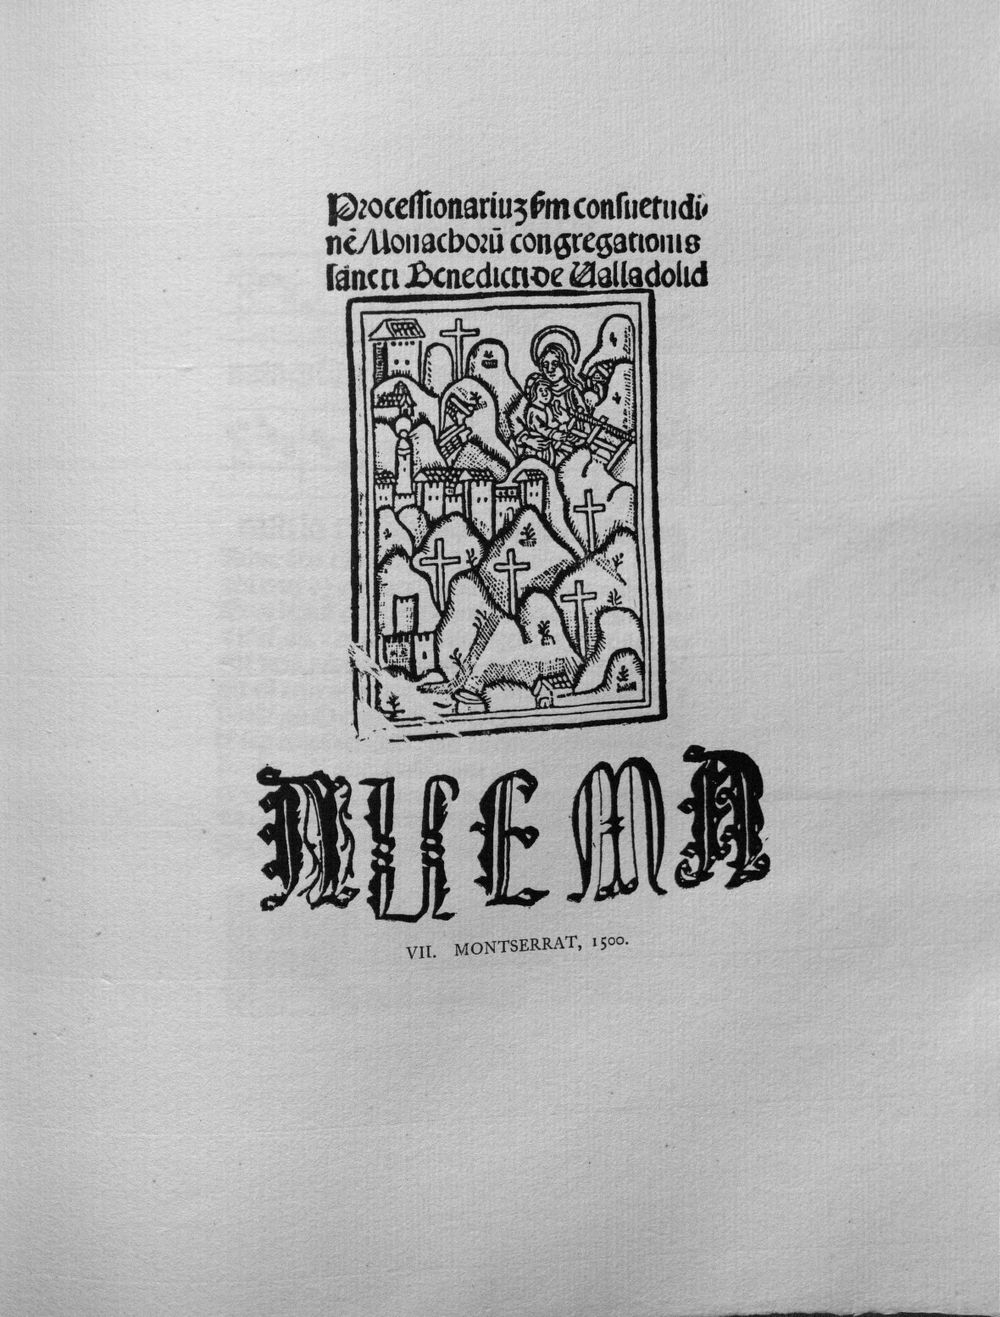 Processionariuꝫ ẜm consuetudi-
nē Monachorū congregationis
sancti Benedicti de Valladolid
A U E M A
VII. MONTSERRAT, 1500.